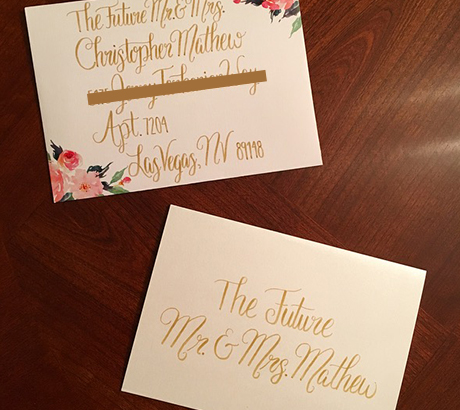 The Future Mr. & Mrs.
Christopher Mathew
Apt. 7204
Las Vegas, NV 89148
The Future
Mr. & Mrs. Mathew